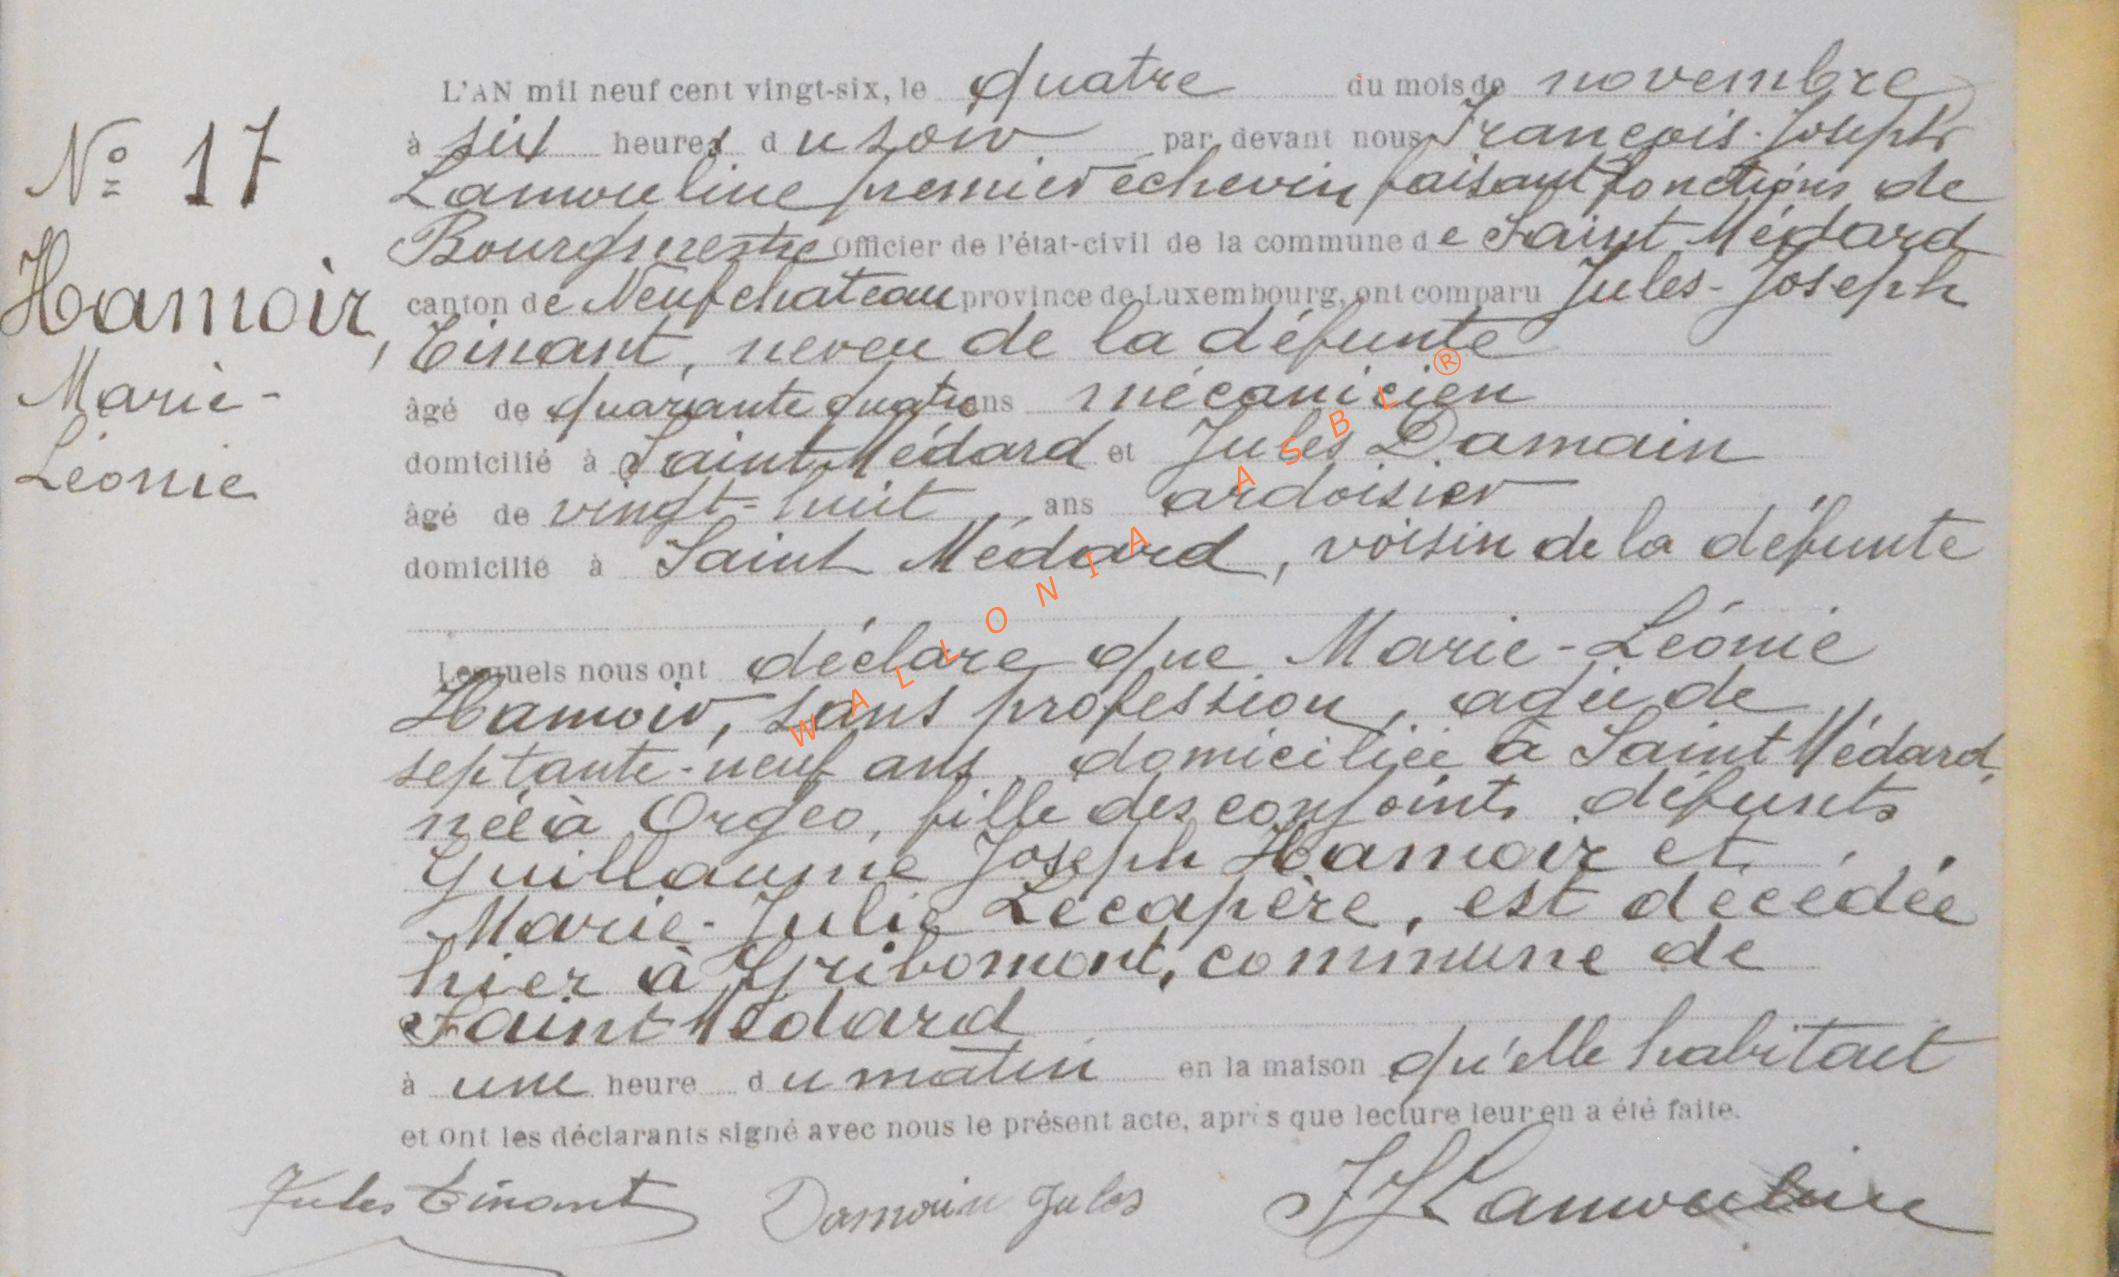 N° 17
Hamoir,
Marie-
Léonie
L'AN mil neuf cent vingt-six, le quatre du mois de novembre
à six heures du soir par devant nous François-Joseph
Lamouline premier échevin faisant fonctions de
Bourgmestre Officier de l'état-civil de la commune de Saint Médard
canton de Neufchateau province de Luxembourg, ont comparu Jules-Joseph
Tinant, neveu de la défunte
âgé de quarante quatre ans mécanicien
domicilié à Saint Médard et Jules Damain
âgé de vingt-huit ans ardoisier
domicilié à Saint Médard, voisin de la défunte
Lesquels nous ont déclaré que Marie-Léonie
Hamoir, sans profession, agée de
septante-neuf ans, domiciliée à Saint Médard,
née à Orgeo, fille des conjoints défunts
Guillaume Joseph Hamoir et
Marie-Julie Lecapère, est décédée
hier à Gribomont, commune de
Saint Médard
à une heure du matin en la maison qu'elle habitait
et ont les déclarants signé avec nous le présent acte, après que lecture leur en a été faite.
Jules Tinant Damain Jules FJ Lamouline
WALLONIA ASBL ®